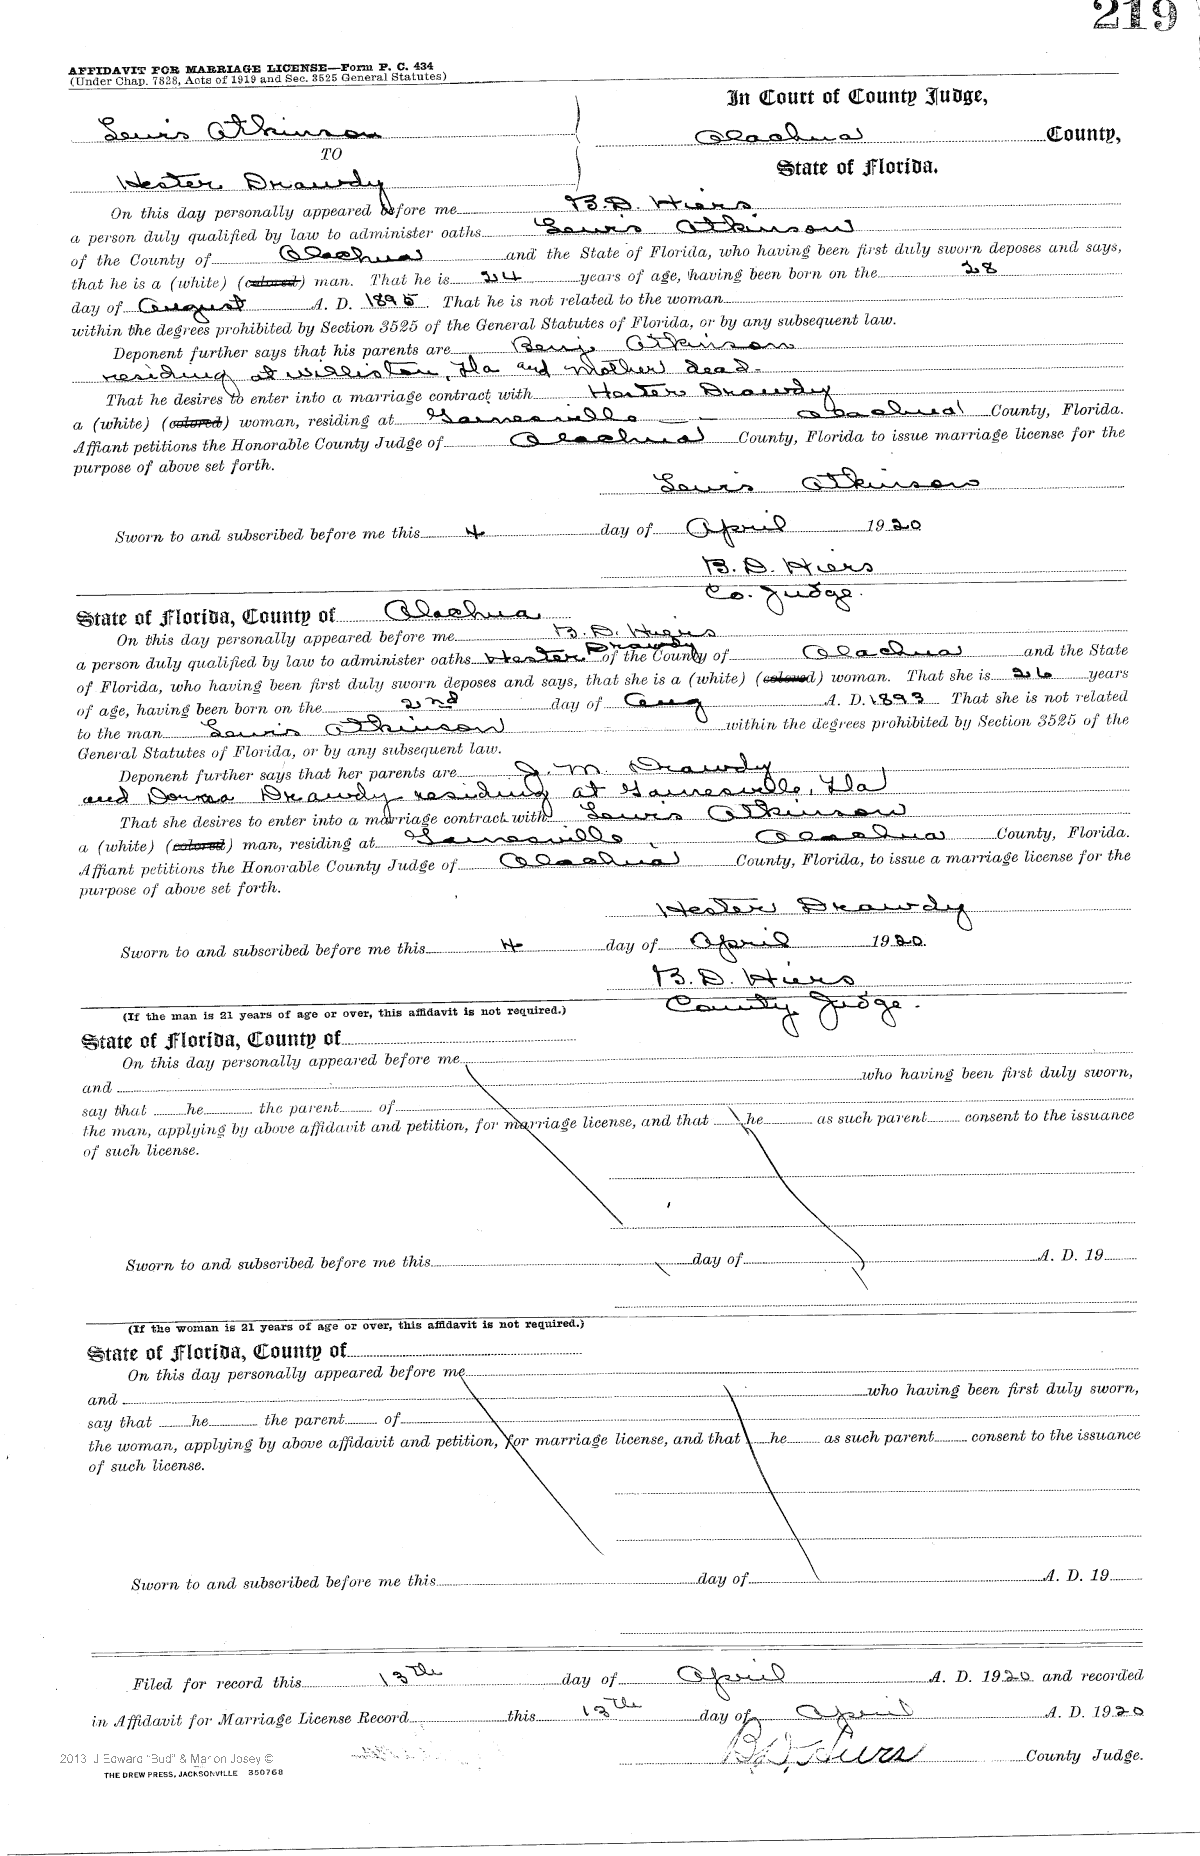 219
AFFIDAVIT FOR MARRIAGE LICENSE—Form P. C. 434
(Under Chap. 7828, Acts of 1919 and Sec. 3525 General Statutes)
In Court of County Judge,
Lewis Atkinson
Alachua County,
TO
State of Florida.
Hester Drawdy
On this day personally appeared before me B. D. Hiers
a person duly qualified by law to administer oaths Lewis Atkinson
of the County of Alachua and the State of Florida, who having been first duly sworn deposes and says,
that he is a (white) (colored) man. That he is 24 years of age, having been born on the 28
day of August A. D. 1895 That he is not related to the woman
within the degrees prohibited by Section 3525 of the General Statutes of Florida, or by any subsequent law.
Deponent further says that his parents are Benj Atkinson
residing at Williston, Fla and mother dead.
That he desires to enter into a marriage contract with Hester Drawdy
a (white) (colored) woman, residing at Gainesville — Alachua County, Florida.
Affiant petitions the Honorable County Judge of Alachua County, Florida to issue marriage license for the
purpose of above set forth.
Lewis Atkinson
Sworn to and subscribed before me this 4 day of April 1920
B. D. Hiers
Co. Judge.
State of Florida, County of Alachua
On this day personally appeared before me B. D. Hiers
a person duly qualified by law to administer oaths Hester Drawdy of the County of Alachua and the State
of Florida, who having been first duly sworn deposes and says, that she is a (white) (colored) woman. That she is 26 years
of age, having been born on the 2nd day of Aug A. D. 1893 That she is not related
to the man Lewis Atkinson within the degrees prohibited by Section 3525 of the
General Statutes of Florida, or by any subsequent law.
Deponent further says that her parents are J. M. Drawdy
and Drawdy residing at Gainesville, Fla
That she desires to enter into a marriage contract with Lewis Atkinson
a (white) (colored) man, residing at Gainesville Alachua County, Florida.
Affiant petitions the Honorable County Judge of Alachua County, Florida, to issue a marriage license for the
purpose of above set forth.
Hester Drawdy
Sworn to and subscribed before me this 4 day of April 1920.
B. D. Hiers
County Judge.
(If the man is 21 years of age or over, this affidavit is not required.)
State of Florida, County of
On this day personally appeared before me
and who having been first duly sworn,
say that he the parent of
the man, applying by above affidavit and petition, for marriage license, and that he as such parent consent to the issuance
of such license.
Sworn to and subscribed before me this day of A. D. 19
(If the woman is 21 years of age or over, this affidavit is not required.)
State of Florida, County of
On this day personally appeared before me
and who having been first duly sworn,
say that he the parent of
the woman, applying by above affidavit and petition, for marriage license, and that he as such parent consent to the issuance
of such license.
Sworn to and subscribed before me this day of A. D. 19
Filed for record this 13th day of April A. D. 1920 and recorded
in Affidavit for Marriage License Record this 13th day of April A. D. 1920
B. D. Hiers County Judge.
2013 J Edward "Bud" & Marion Josey ©
THE DREW PRESS, JACKSONVILLE 350768